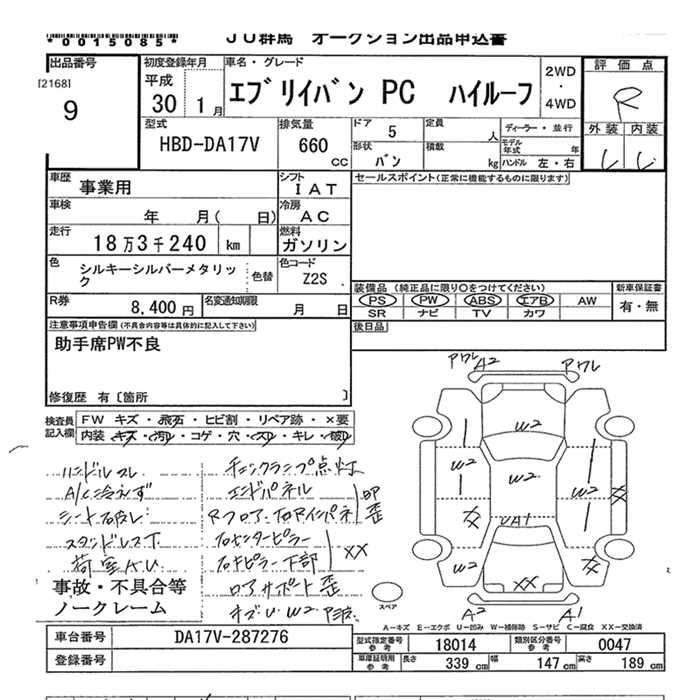 *0015085*
JU群馬 オークション出品申込書
出品番号
[2168]
9
初度登録年月
平成
30 1月
車名・グレード
エブリイバン PC ハイルーフ
2WD
・
4WD
評価点
R
外装 内装
型式
HBD-DA17V
排気量
660
cc
ドア 5
形状 バン
定員 人
積載 kg
ディーラー・並行
モデル年式 年
ハンドル 左・右
車歴 事業用
シフト IAT
車検 年 月( 日)
冷房 AC
走行 18万3千240 km
燃料 ガソリン
色 シルキーシルバーメタリック
色替
色コード Z2S
R券 8,400円
名変通知期限 月 日
セールスポイント(正常に機能するものに限ります)
装備品(純正品に限り○をつけてください)
PS PW ABS エアB AW
SR ナビ TV カワ
新車保証書
有・無
後日品
注意事項申告欄(不具合内容等は具体的に記入して下さい)
助手席PW不良
修復歴 有〔箇所 〕
検査員記入欄
FW キズ・飛石・ヒビ割・リペア跡・×要
内装 キズ・汚れ・コゲ・穴・スレ・キレ・破れ
ハンドルスレ
A/C冷えず
シート破レ
スタンドレス下
荷室A.U
チェックランプ点灯
エンドパネル
Rフロア、右Rインパネ
凹歪
右センターピラー
右Rピラー下部
XX
ロアサポート歪
キズU W2
事故・不具合等
ノークレーム
アワレ A2 アワレ
W2
W2
W2
W2
XX
XX
UA1
W2
W2
XX
A2 A1
スペア
A-キズ E-エクボ U-凹み W-補修跡 S-サビ C-腐食 XX-交換済
車台番号 DA17V-287276
登録番号
型式指定番号 参考 18014
類別区分番号 参考 0047
車庫証明用 参考 長さ 339cm 幅 147cm 高さ 189cm